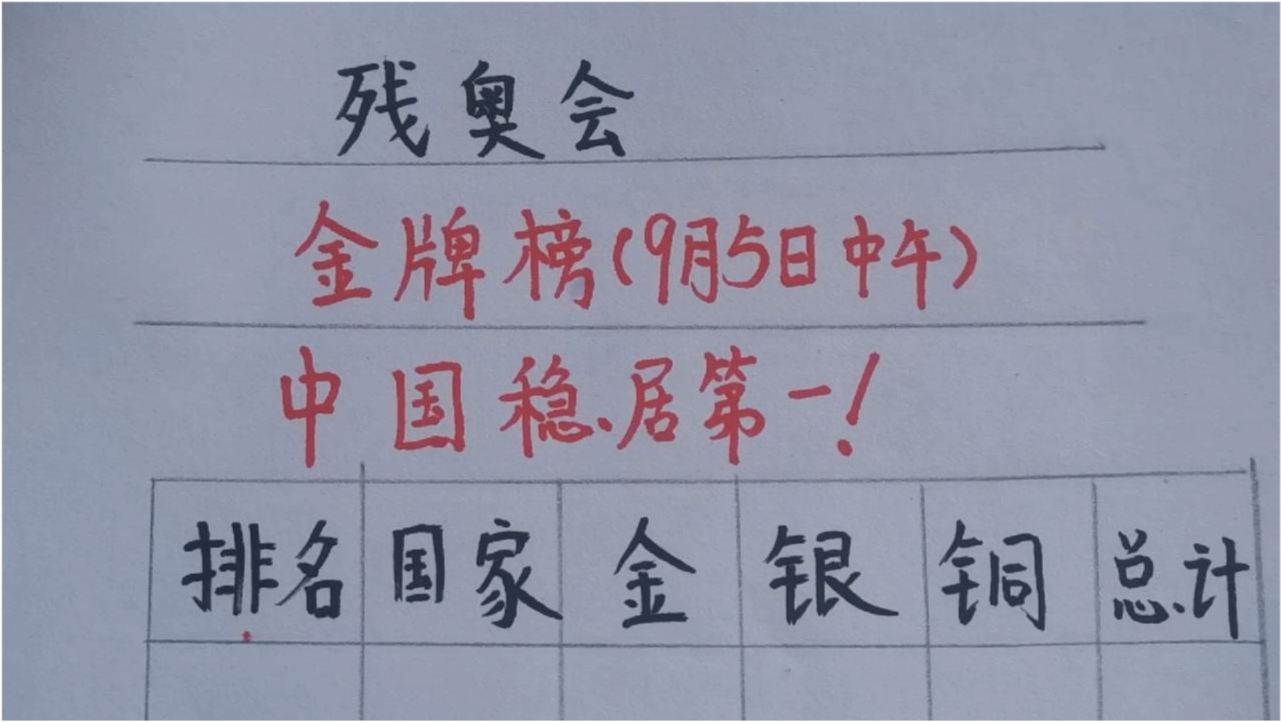 残奥会
金牌榜(9月5日中午)
中国稳居第一!
排名 国家 金 银 铜 总计